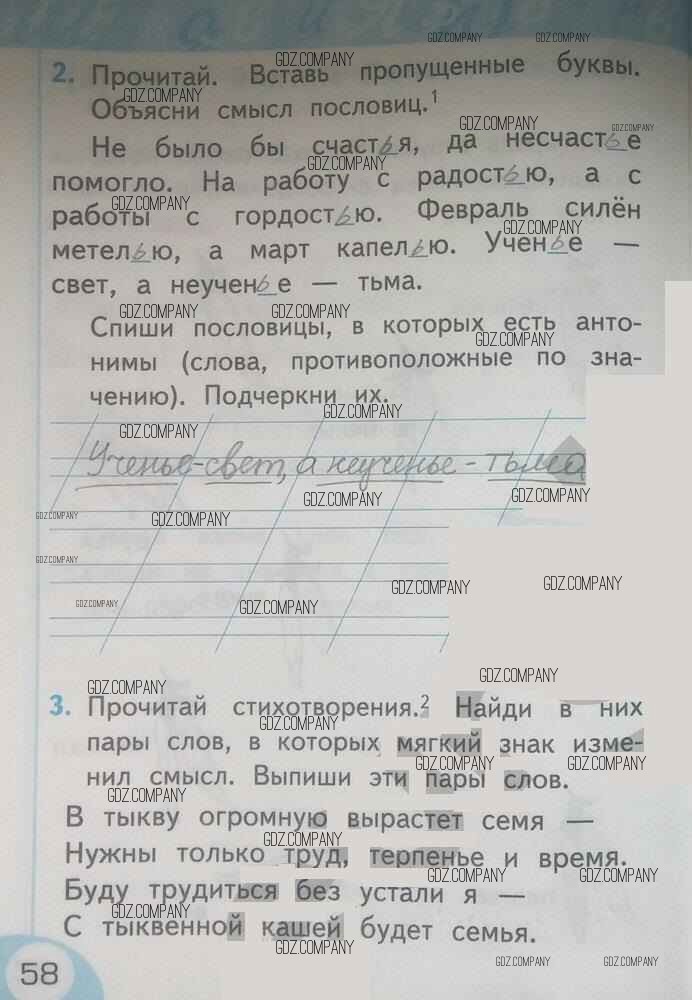 2. Прочитай. Вставь пропущенные буквы.
Объясни смысл пословиц.¹
Не было бы счастья, да несчастье
помогло. На работу с радостью, а с
работы с гордостью. Февраль силён
метелью, а март капелью. Ученье —
свет, а неученье — тьма.
Спиши пословицы, в которых есть анто-
нимы (слова, противоположные по зна-
чению). Подчеркни их.
Ученье-свет, а неученье - тьма
3. Прочитай стихотворения.² Найди в них
пары слов, в которых мягкий знак изме-
нил смысл. Выпиши эти пары слов.
В тыкву огромную вырастет семя —
Нужны только труд, терпенье и время.
Буду трудиться без устали я —
С тыквенной кашей будет семья.
58
GDZ.COMPANY